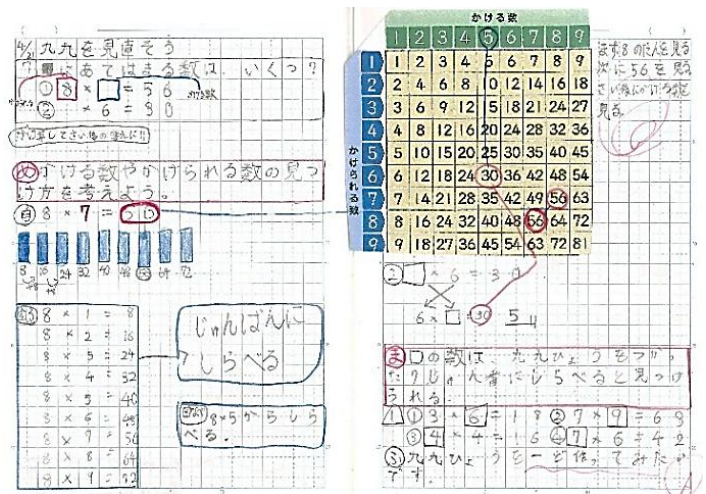 4/21 九九を見直そう
?■にあてはまる数は、いくつ?
① 8 × □ = 56
かける数
② □ × 6 = 30
め かける数やかけられる数の見つ
け方を考えよう。
自 8 × 7 = 56
8 16 24 32 40 48 56 64 72
8 × 1 = 8
8 × 2 = 16
8 × 3 = 24
8 × 4 = 32
8 × 5 = 40
8 × 6 = 48
8 × 7 = 56
8 × 8 = 64
8 × 9 = 72
じゅんばんに
しらべる
8×5からしら
べる。
かける数
1 2 3 4 5 6 7 8 9
かけられる数
1 1 2 3 4 5 6 7 8 9
2 2 4 6 8 10 12 14 16 18
3 3 6 9 12 15 18 21 24 27
4 4 8 12 16 20 24 28 32 36
5 5 10 15 20 25 30 35 40 45
6 6 12 18 24 30 36 42 48 54
7 7 14 21 28 35 42 49 56 63
8 8 16 24 32 40 48 56 64 72
9 9 18 27 36 45 54 63 72 81
まず8のだんを見る
次に56を見る
見る
② □ × 6 = 30
6 × □ = 30 5
ま □の数は、九九ひょうをつかっ
たりじゅん番にしらべると見つけ
られる。
1 ① 3 × 6 = 18 ② 7 × 9 = 63
③ 4 × 4 = 16 ④ 7 × 6 = 42
九九ひょうを一ど作ってみたい
です。
A